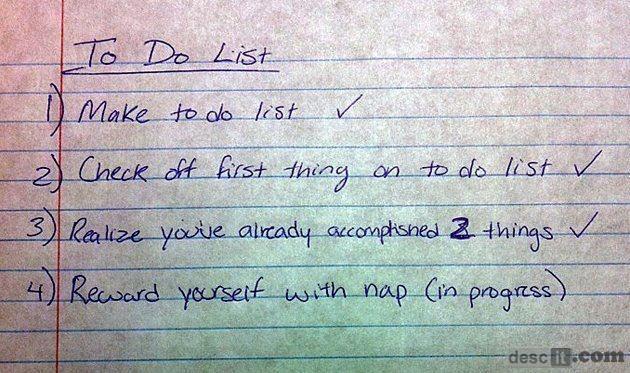 To Do List
1) Make to do list ✓
2) Check off first thing on to do list ✓
3) Realize you've already accomplished 2 things ✓
4) Reward yourself with nap (in progress)
descit.com